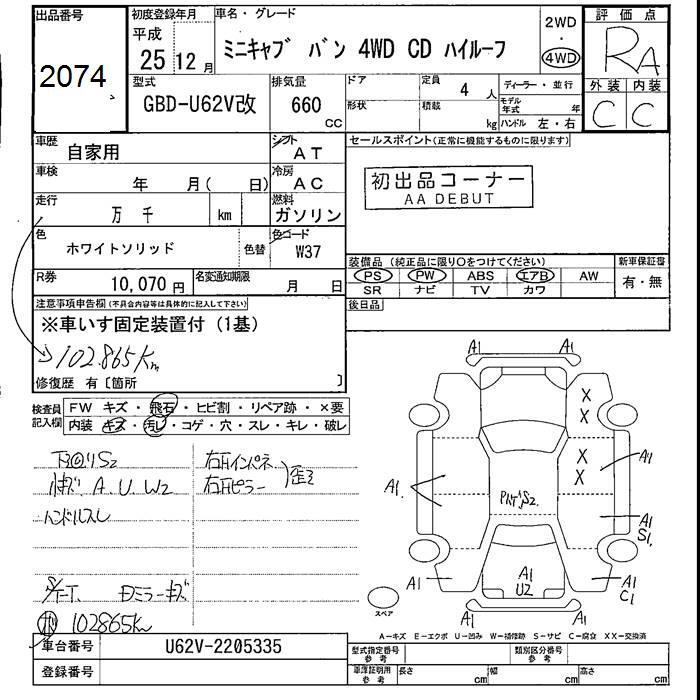 出品番号
2074
初度登録年月
平成
25年12月
車名・グレード
ミニキャブ バン 4WD CD ハイルーフ
2WD
・
4WD
評価点
RA
型式
GBD-U62V改
排気量
660
CC
ドア
形状
定員
4 人
積載
kg
ディーラー・並行
モデル年式 年
ハンドル 左・右
外装 内装
C C
車歴
自家用
シフト
AT
セールスポイント(正常に機能するものに限ります)
初出品コーナー
AA DEBUT
車検
年 月( 日)
冷房
AC
走行
万 千 km
燃料
ガソリン
色
ホワイトソリッド
色替
色コード
W37
装備品 (純正品に限り○をつけてください)
新車保証書
PS PW ABS エアB AW
SR ナビ TV カワ
有・無
R券
10,070 円
名変通知期限
月 日
後日品
注意事項申告欄(不具合内容等は具体的に記入して下さい)
※車いす固定装置付(1基)
102.865Km
修復歴 有〔箇所 〕
検査員記入欄
FW キズ・飛石・ヒビ割・リペア跡・×要
内装 キズ・汚レ・コゲ・穴・スレ・キレ・破レ
下回りS2
小キズ A.U.W2
ハンドルスレ
右Fインパネ
右Fピラー
歪ミ
Dミラーキズ
102865Km
A1 A1
X
X
X
X
A1
A1
A1
S1
PハリS2
A1
A1
U2
A1
C1
A1 A1
スペア
A-キズ E-エクボ U-凹み W-補修跡 S-サビ C-腐食 XX-交換済
車台番号
U62V-2205335
登録番号
型式指定番号
参考
類別区分番号
参考
車庫証明用
参考
長さ cm
幅 cm
高さ cm